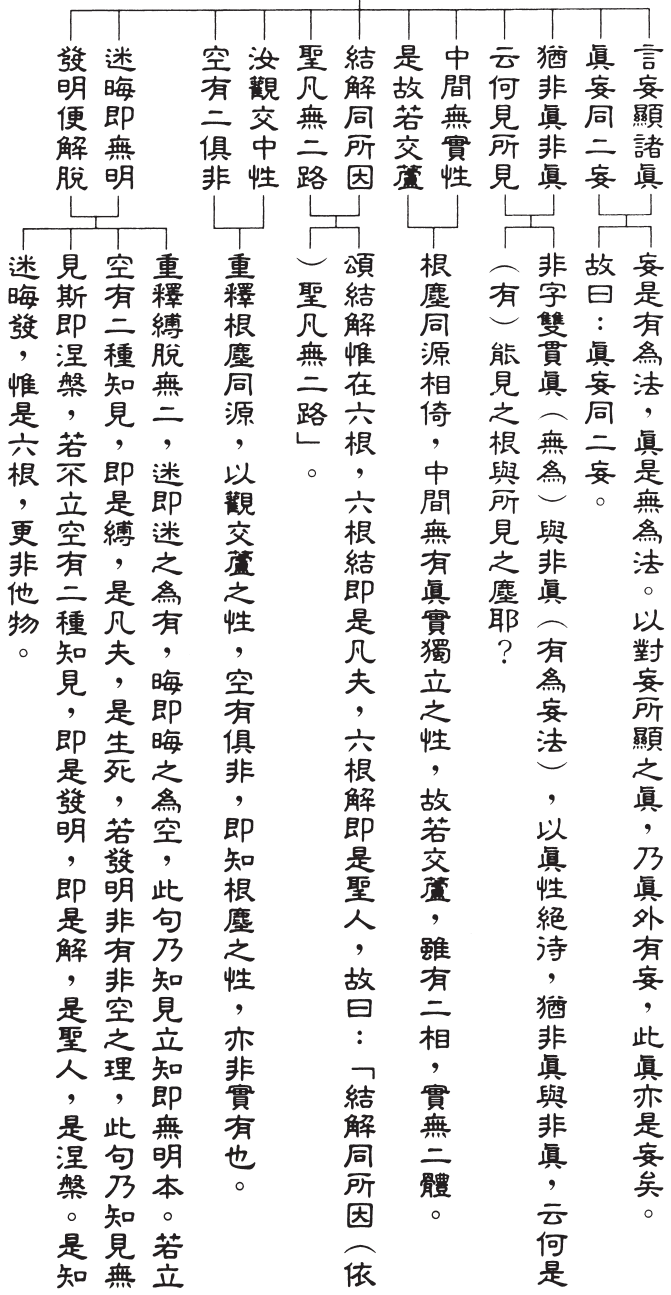 言妄顯諸眞
眞妄同二妄
猶非眞非眞
云何見所見
中間無實性
是故若交蘆
結解同所因
聖凡無二路
汝觀交中性
空有二俱非
迷晦即無明
發明便解脫
妄是有為法，眞是無為法。以對妄所顯之眞，乃眞外有妄，此眞亦是妄矣。
故曰：眞妄同二妄。
非字雙貫眞（無為）與非眞（有為妄法），以眞性絕待，猶非眞與非眞，云何是
（有）能見之根與所見之塵耶？
根塵同源相倚，中間無有眞實獨立之性，故若交蘆，雖有二相，實無二體。
頌結解惟在六根，六根結即是凡夫，六根解即是聖人，故曰：「結解同所因（依
）聖凡無二路」。
重釋根塵同源，以觀交蘆之性，空有俱非，即知根塵之性，亦非實有也。
重釋縛脫無二，迷即迷之為有，晦即晦之為空，此句乃知見立知即無明本。若立
空有二種知見，即是縛，是凡夫，是生死，若發明非有非空之理，此句乃知見無
見斯即涅槃，若不立空有二種知見，即是發明，即是解，是聖人，是涅槃。是知
迷晦發，惟是六根，更非他物。